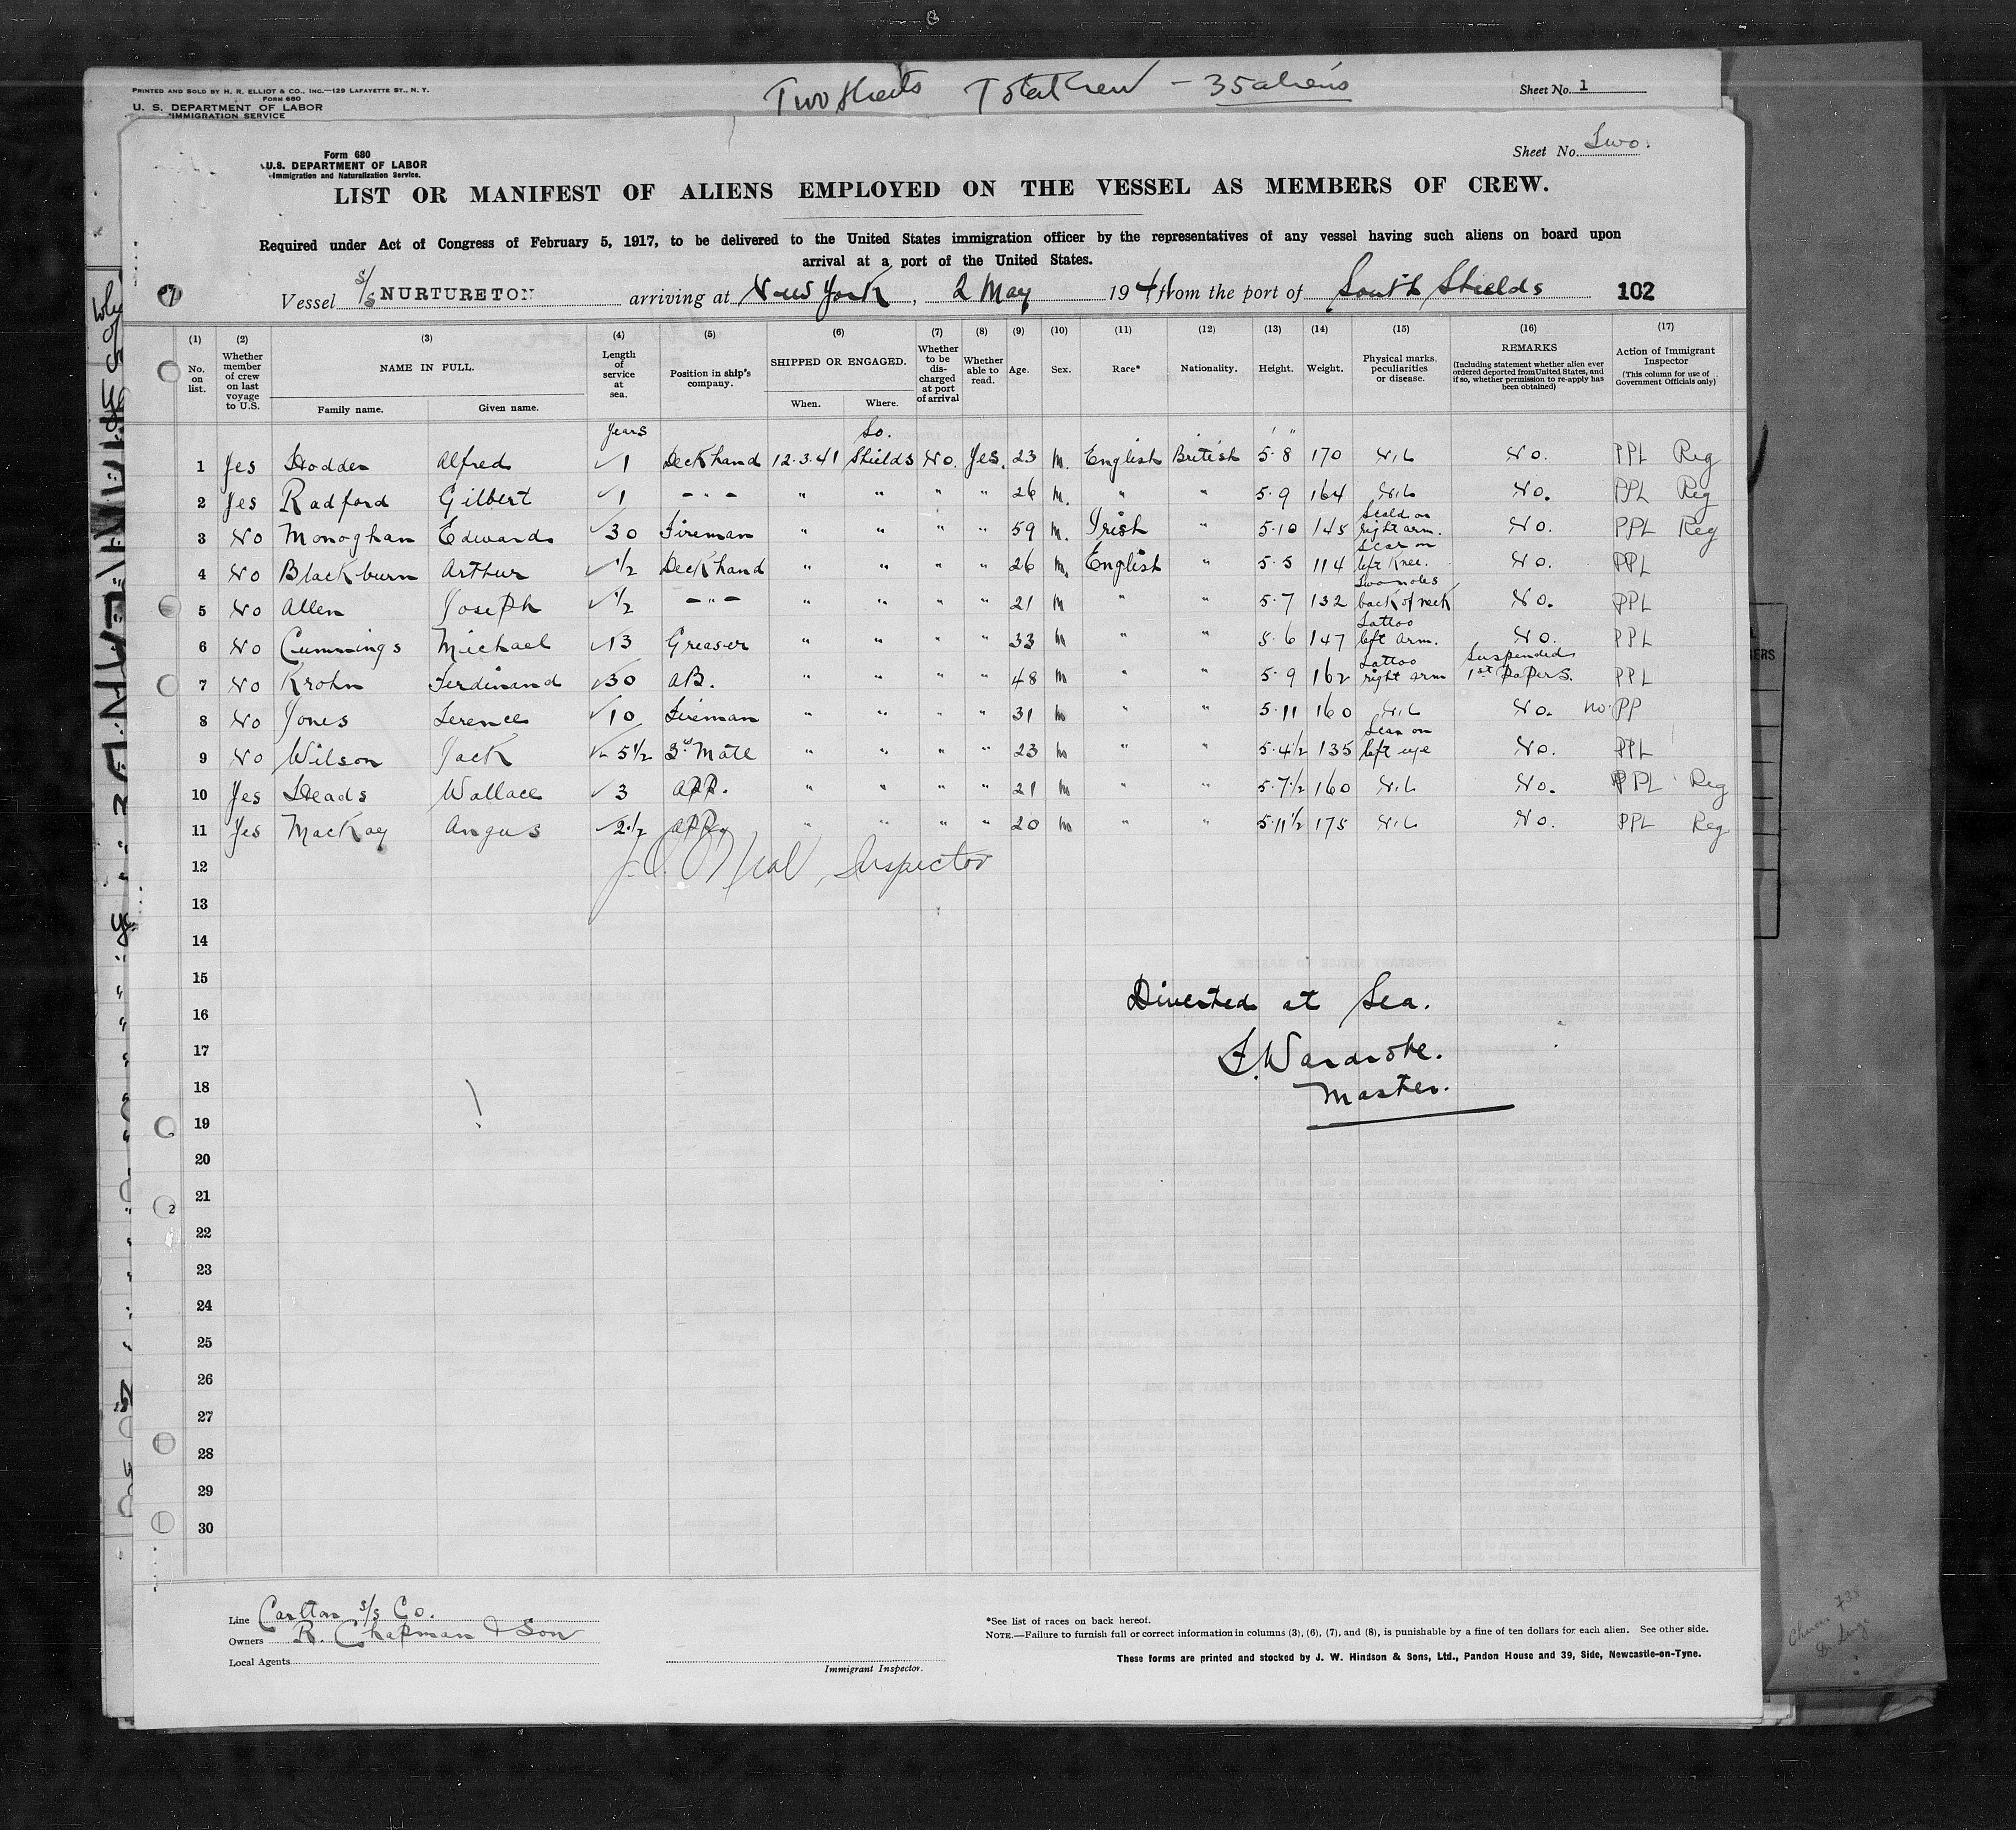 PRINTED AND SOLD BY H. R. ELLIOT & CO., INC.—129 LAFAYETTE ST., N. Y.
FORM 680
U. S. DEPARTMENT OF LABOR
IMMIGRATION SERVICE
Two Sheets Total Crew - 35 aliens
Sheet No. 1
Form 680
U.S. DEPARTMENT OF LABOR
Immigration and Naturalization Service.
Sheet No. Two.
LIST OR MANIFEST OF ALIENS EMPLOYED ON THE VESSEL AS MEMBERS OF CREW.
Required under Act of Congress of February 5, 1917, to be delivered to the United States immigration officer by the representatives of any vessel having such aliens on board upon
arrival at a port of the United States.
Vessel S/S NURTURETON arriving at New York, 2 May 1941 from the port of South Shields 102
(1) (2) (3) (4) (5) (6) (7) (8) (9) (10) (11) (12) (13) (14) (15) (16) (17)
No. on list.
Whether member of crew on last voyage to U.S.
NAME IN FULL.
Family name. Given name.
Length of service at sea.
Position in ship's company.
SHIPPED OR ENGAGED.
When. Where.
Whether to be discharged at port of arrival
Whether able to read.
Age.
Sex.
Race*
Nationality.
Height.
Weight.
Physical marks, peculiarities or disease.
REMARKS
(Including statement whether alien ever ordered deported from United States, and if so, whether permission to re-apply has been obtained)
Action of Immigrant Inspector
(This column for use of Government Officials only)
Years So. ' "
1 Yes Hodden Alfred ✓1 Deckhand 12.3.41 Shields No. Yes. 23 M. English British 5.8 170 Nil No. PPL Reg
2 Yes Radford Gilbert ✓1 - " - " " " " 26 M. " " 5.9 164 Nil No. PPL Reg
3 No Monoghan Edward ✓30 Fireman " " " " 59 M. Irish " 5.10 145 Scald on right arm. No. PPL Reg
4 No Blackburn Arthur ✓1/2 Deckhand " " " " 26 M. English " 5.5 114 Scar on left Knee. No. PPL
5 No Allen Joseph ✓1/2 - " - " " " " 21 M " " 5.7 132 Two moles back of neck No. PPL
6 No Cummings Michael ✓13 Greaser " " " " 33 M " " 5.6 147 Tattoo left arm. No. PPL
7 No Krohn Ferdinand ✓30 AB. " " " " 48 M " " 5.9 162 Tattoo right arm Suspended 1st Papers. PPL
8 No Jones Terence ✓10 Fireman " " " " 31 M " " 5.11 160 Nil No. no PP
9 No Wilson Jack ✓ 5 1/2 3rd Mate " " " " 23 M " " 5.4 1/2 135 Scar on left eye No. PPL
10 Yes Heads Wallace ✓3 APP. " " " " 21 M " " 5.7 1/2 160 Nil No. PPL Reg
11 Yes MacKay Angus ✓2 1/2 APP. " " " " 20 M " " 5.11 1/2 175 Nil No. PPL Reg
12
Inspector
13
14
15
Diverted at Sea.
16
17
F. Wardrobe.
18
Master.
19
20
21
22
23
24
25
26
27
28
29
30
Line Carlton S/S Co.
Owners R. Chapman & Son
Local Agents
Immigrant Inspector.
*See list of races on back hereof.
NOTE.—Failure to furnish full or correct information in columns (3), (6), (7), and (8), is punishable by a fine of ten dollars for each alien. See other side.
These forms are printed and stocked by J. W. Hindson & Sons, Ltd., Pandon House and 39, Side, Newcastle-on-Tyne.